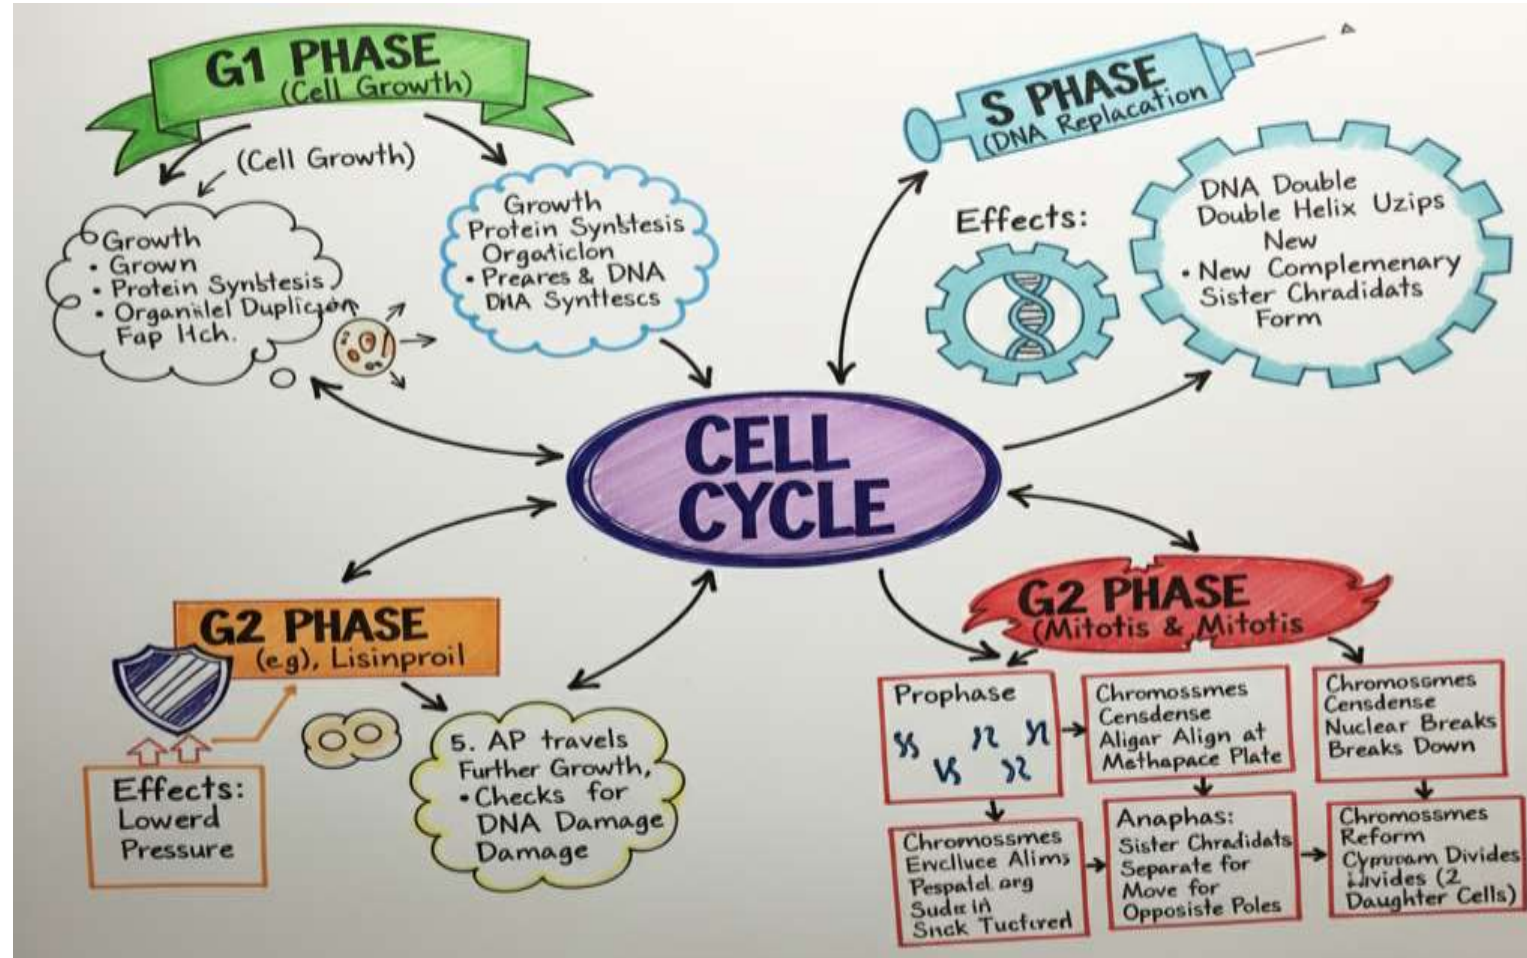 G1 PHASE
(Cell Growth)
(Cell Growth)
Growth
• Grown
• Protein Synbtesis
• Organilel Duplicjon
Fap Itch.
Growth
Protein Synbtesis
Orgaticlon
• Preares & DNA
DHA Synttescs
S PHASE
(DNA Replacation
Effects:
DNA Double
Double Helix Uzips
New
• New Complemenary
Sister Chradidats
Form
CELL
CYCLE
G2 PHASE
(e.g), Lisinproil
Effects:
Lowerd
Pressure
5. AP travels
Further Growth,
• Checks for
DNA Damage
Damage
G2 PHASE
(Mitotis & Mitotis
Prophase
Chromossmes
Censdense
Aligar Align at
Methapace Plate
Chromossmes
Censdense
Nuclear Breaks
Breaks Down
Chromossmes
Enclluce Alims
Pespatel org
Sude in
Snck Tuctured
Anaphas:
Sister Chradidats
Separate for
Move for
Opposiste Poles
Chromossmes
Reform
Divides
Divides (2
Daughter Cells)